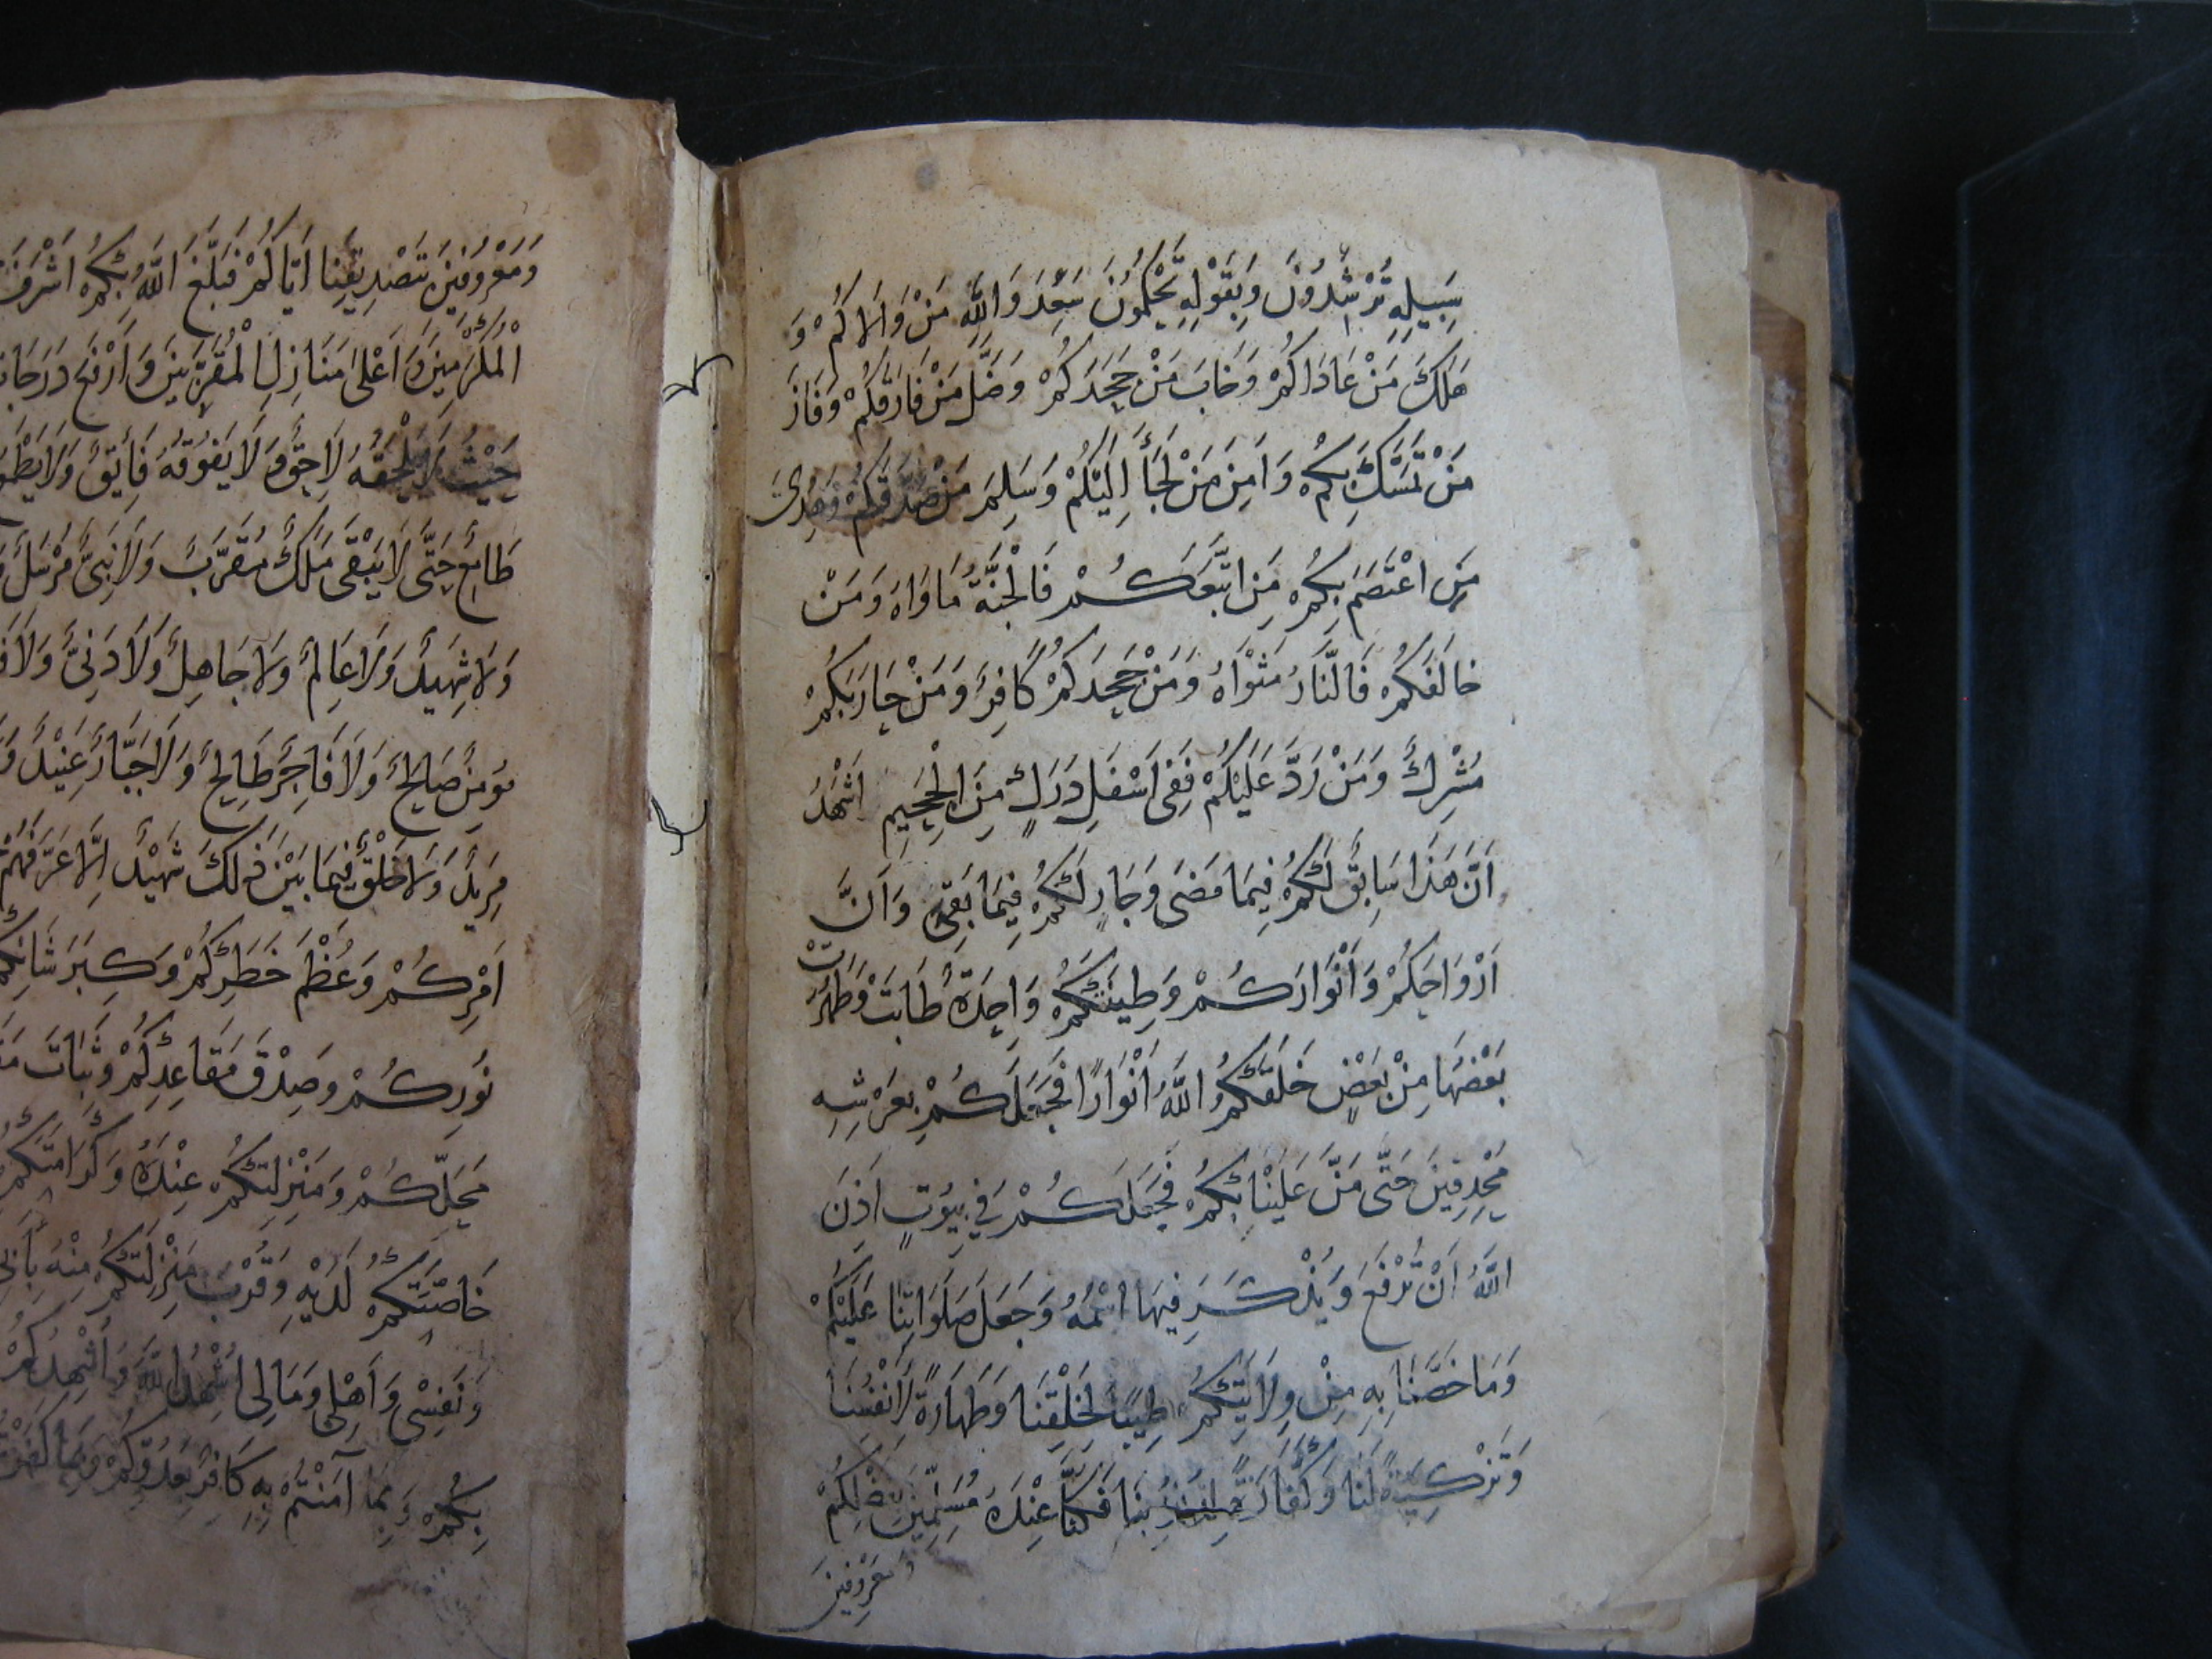 سَبِيلِهِ تُرْشِدُونَ وَبِقَوْلِهِ تَحْكُمُونَ سَعِدَ وَاللَّهِ مَنْ وَالَاكُمْ وَ
هَلَكَ مَنْ عَادَاكُمْ وَخَابَ مَنْ جَحَدَكُمْ وَضَلَّ مَنْ فَارَقَكُمْ وَفَازَ
مَنْ تَمَسَّكَ بِكُمْ وَاَمِنَ مَنْ لَجَأَ اِلَيْكُمْ وَسَلِمَ مَنْ صَدَّقَكُمْ وَهُدِىَ
مَنِ اعْتَصَمَ بِكُمْ مَنِ اتَّبَعَكُمْ فَالْجَنَّةُ مَاوَاهُ وَمَنْ
خَالَفَكُمْ فَالنَّارُ مَثْوَاهُ وَمَنْ جَحَدَكُمْ كَافِرٌ وَمَنْ حَارَبَكُمْ
مُشْرِكٌ وَمَنْ رَدَّ عَلَيْكُمْ فَفِى اَسْفَلِ دَرَكٍ مِنَ الْجَحِيمِ اَشْهَدُ
اَنَّ هَذَا سَابِقٌ لَكُمْ فِيمَا مَضَى وَجَارٍ لَكُمْ فِيمَا بَقِىَ وَاَنَّ
اَرْوَاحَكُمْ وَاَنْوَارَكُمْ وَطِينَتَكُمْ وَاحِدَةٌ طَابَتْ وَطَهُرَتْ
بَعْضُهَا مِنْ بَعْضٍ خَلَقَكُمُ اللَّهُ اَنْوَارًا فَجَعَلَكُمْ بِعَرْشِهِ
مُحْدِقِينَ حَتَّى مَنَّ عَلَيْنَا بِكُمْ فَجَعَلَكُمْ فِي بُيُوتٍ اَذِنَ
اللَّهُ اَنْ تُرْفَعَ وَيُذْكَرَ فِيهَا اسْمُهُ وَجَعَلَ صَلَوَاتِنَا عَلَيْكُمْ
وَمَا خَصَّنَا بِهِ مِنْ وِلَايَتِكُمْ طِيبًا لِخَلْقِنَا وَطَهَارَةً لِاَنْفُسِنَا
وَتَزْكِيَةً لَنَا وَكَفَّارَةً لِذُنُوبِنَا فَكُنَّا عِنْدَهُ مُسَلِّمِينَ بِفَضْلِكُمْ
وَمَعْرُوفِينَ
وَمَعْرُوفِينَ بِتَصْدِيقِنَا اِيَّاكُمْ فَبَلَغَ اللَّهُ بِكُمْ اَشْرَفَ
الْمُكَرَّمِينَ وَاَعْلَى مَنَازِلِ الْمُقَرَّبِينَ وَاَرْفَعَ دَرَجَاتِ
حَيْثُ لَا يَلْحَقُهُ لَاحِقٌ وَلَا يَفُوقُهُ فَائِقٌ وَلَا
طَامِعٌ حَتَّى لَا يَبْقَى مَلَكٌ مُقَرَّبٌ وَلَا نَبِىٌّ مُرْسَلٌ
وَلَا شَهِيدٌ وَلَا عَالِمٌ وَلَا جَاهِلٌ وَلَا دَنِىٌّ وَلَا
مُؤْمِنٌ صَالِحٌ وَلَا فَاجِرٌ طَالِحٌ وَلَا جَبَّارٌ عَنِيدٌ وَ
مَرِيدٌ وَلَا خَلْقٌ فِيمَا بَيْنَ ذَلِكَ شَهِيدٌ اِلَّا عَرَّفَهُمْ
اَمْرِكُمْ وَعُظْمَ خَطَرِكُمْ وَكِبَرَ شَانِكُمْ
نُورِكُمْ وَصِدْقَ مَقَاعِدِكُمْ وَثَبَاتَ
مَحَلِّكُمْ وَمَنْزِلَتِكُمْ عِنْدَهُ وَكَرَامَتَكُمْ
خَاصَّتَكُمْ لَدَيْهِ وَقُرْبَ مَنْزِلَتِكُمْ مِنْهُ بِاَبِى
وَنَفْسِى وَاَهْلِى وَمَالِى اُشْهِدُ اللَّهَ وَاُشْهِدُكُمْ
بِكُمْ وَبِمَا آمَنْتُمْ بِهِ كَافِرٌ بِعَدُوِّكُمْ وَبِمَا كَفَرْتُمْ